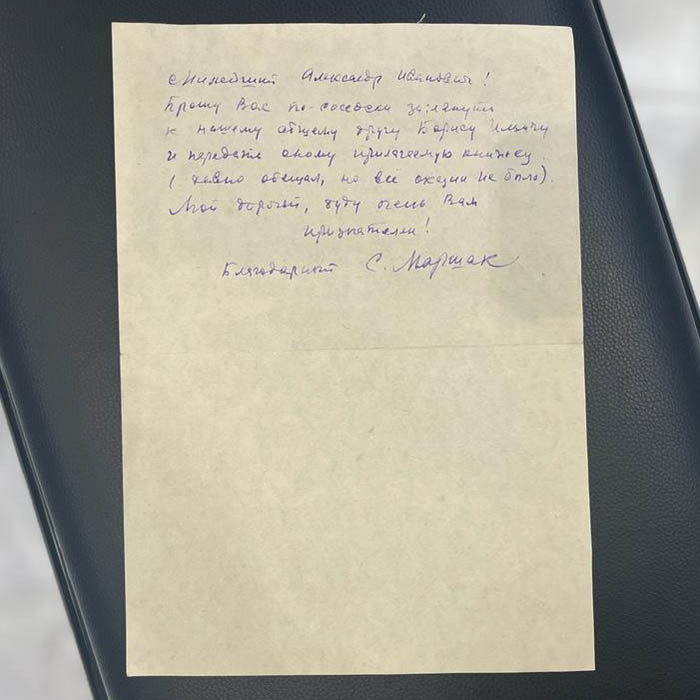 Милейший Александр Иванович!
Прошу Вас по-соседски заглянуть
к нашему общему другу Борису Ильичу
и передать оному прилагаемую книжку
(давно обещал, но всё оказии не было).
Мой дорогой, буду очень Вам
признателен!
Благодарный С. Маршак